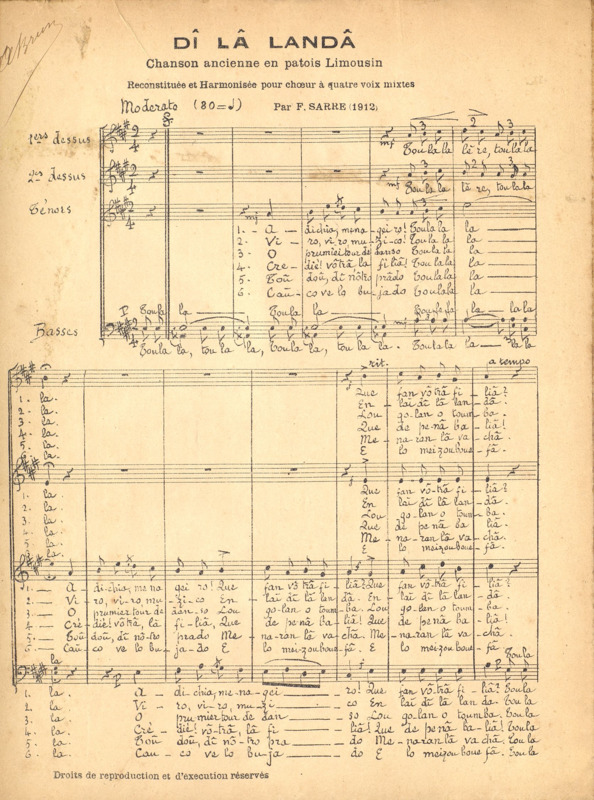 DÎ LÂ LANDÂ
Chanson ancienne en patois Limousin
Reconstituée et Harmonisée pour chœur à quatre voix mixtes
Moderato (80=♩) Par F. SARRE (1912)
1ers dessus
mf Toulala lé re, toulala
2es dessus
mf Toulala lé re, toulala
Ténors
mf
1. — A — dichia, mena — gei ro! Toulala la
2. — Vi — ro, vi ro, mu — zi — co! Toulala la
3. — O prumiei tour de Toulala la
4. — Cre — die! vôtrâ la filiâ! Toulala la
5. — Toû doû, dî nôtro prâdo Toulala la
6. — Caû — co ve lo bu — jado Toulala la
P Toula la Toula la la lala
Basses
Toula la, tou la la, Toula la, toula la. Toulala la — la la
rit. a tempo
1. la. Que fan vôtrâ fi — liâ?
2. la. En — laî dî lâ lan — dâ.
3. la. Lou go — lan o toum — ba.
4. la. Que de penâ ba — liâ!
5. la. Me — naran lâ va — châ.
6. la. E lo meizouboue — fâ.
1. la. Que fan vô — trâ fi — liâ?
2. la. En laî dî lâ lan — dâ.
3. la. Lou go — lan o toum — ba.
4. la. Que de penâ ba liâ.
5. la. Me — naran lâ va — châ.
6. la. E lo meizouboue — fâ.
1. — A — di — chia, me na — gei ro! Que fan vô trâ fi — liâ? Que fan vôtrâ fi — liâ?
2. — Vi — ro, vi — ro, mu — zi — co En — laî dî lâ lan — dâ. En laî dî lâ lan — dâ.
3. — O prumier tour de dan — so Lou golan o toum — ba. Lou golan o toum — ba.
4. — Crè — die! vôtrâ, lâ fi — liâ, Que de penâ ba — liâ! Que de penâ ba — liâ!
5. — Toû doû, dî nô — tro prado Me — naran lâ va — châ. Me — naran lâ va — châ.
6. — Caû — co ve lo bu — jado E lo meizoubouefâ. E lo meizou boue — fâ.
la P P Toula
1. la. A — di chia, me — na — gei ro! Que fan vôtrâ fi — liâ! Toula
2. la. Vi — ro, vi — ro, mu — zi — co En laî dî lâ lan dâ. Toula
3. la. O pru mier tour de dan — so Lou golan o toumba. Toula
4. la. Crè — die! vô — trâ, lâ fi — liâ! Que de penâ ba — liâ! Toula
5. la. Toû doû, dî nô — tro pra — do Me — naran lâ va châ. Toula
6. la. Cau — co ve lo bu ja — do E lo meizou boue fâ. Toula
Droits de reproduction et d'execution réservés